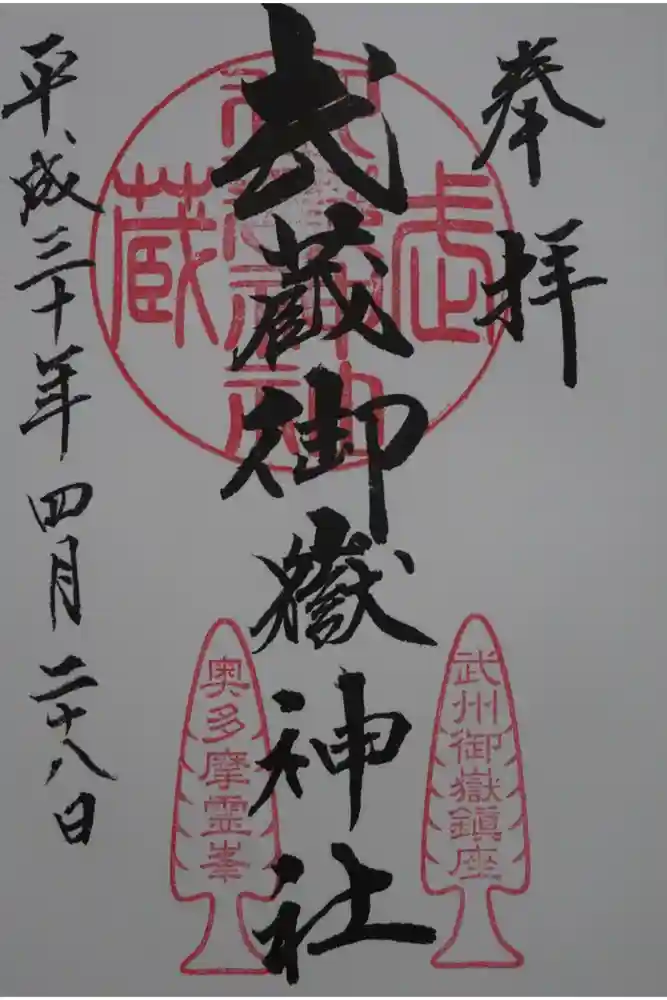 奉拝
武蔵御嶽神社
平成三十年四月二十八日
武蔵
武州御嶽鎮座
奥多摩霊峯